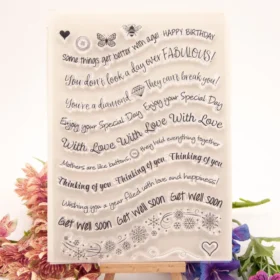 HAPPY BIRTHDAY
Some things get better with age
You don't look a day over FABULOUS!
You're a diamond They can't break you!
Enjoy your Special Day Enjoy your Special Day
With Love With Love With Love
Mothers are like buttons they hold everything together
Thinking of you Thinking of you Thinking of you
Wishing you a year filled with love and happiness!
Get well soon Get well soon Get well soon